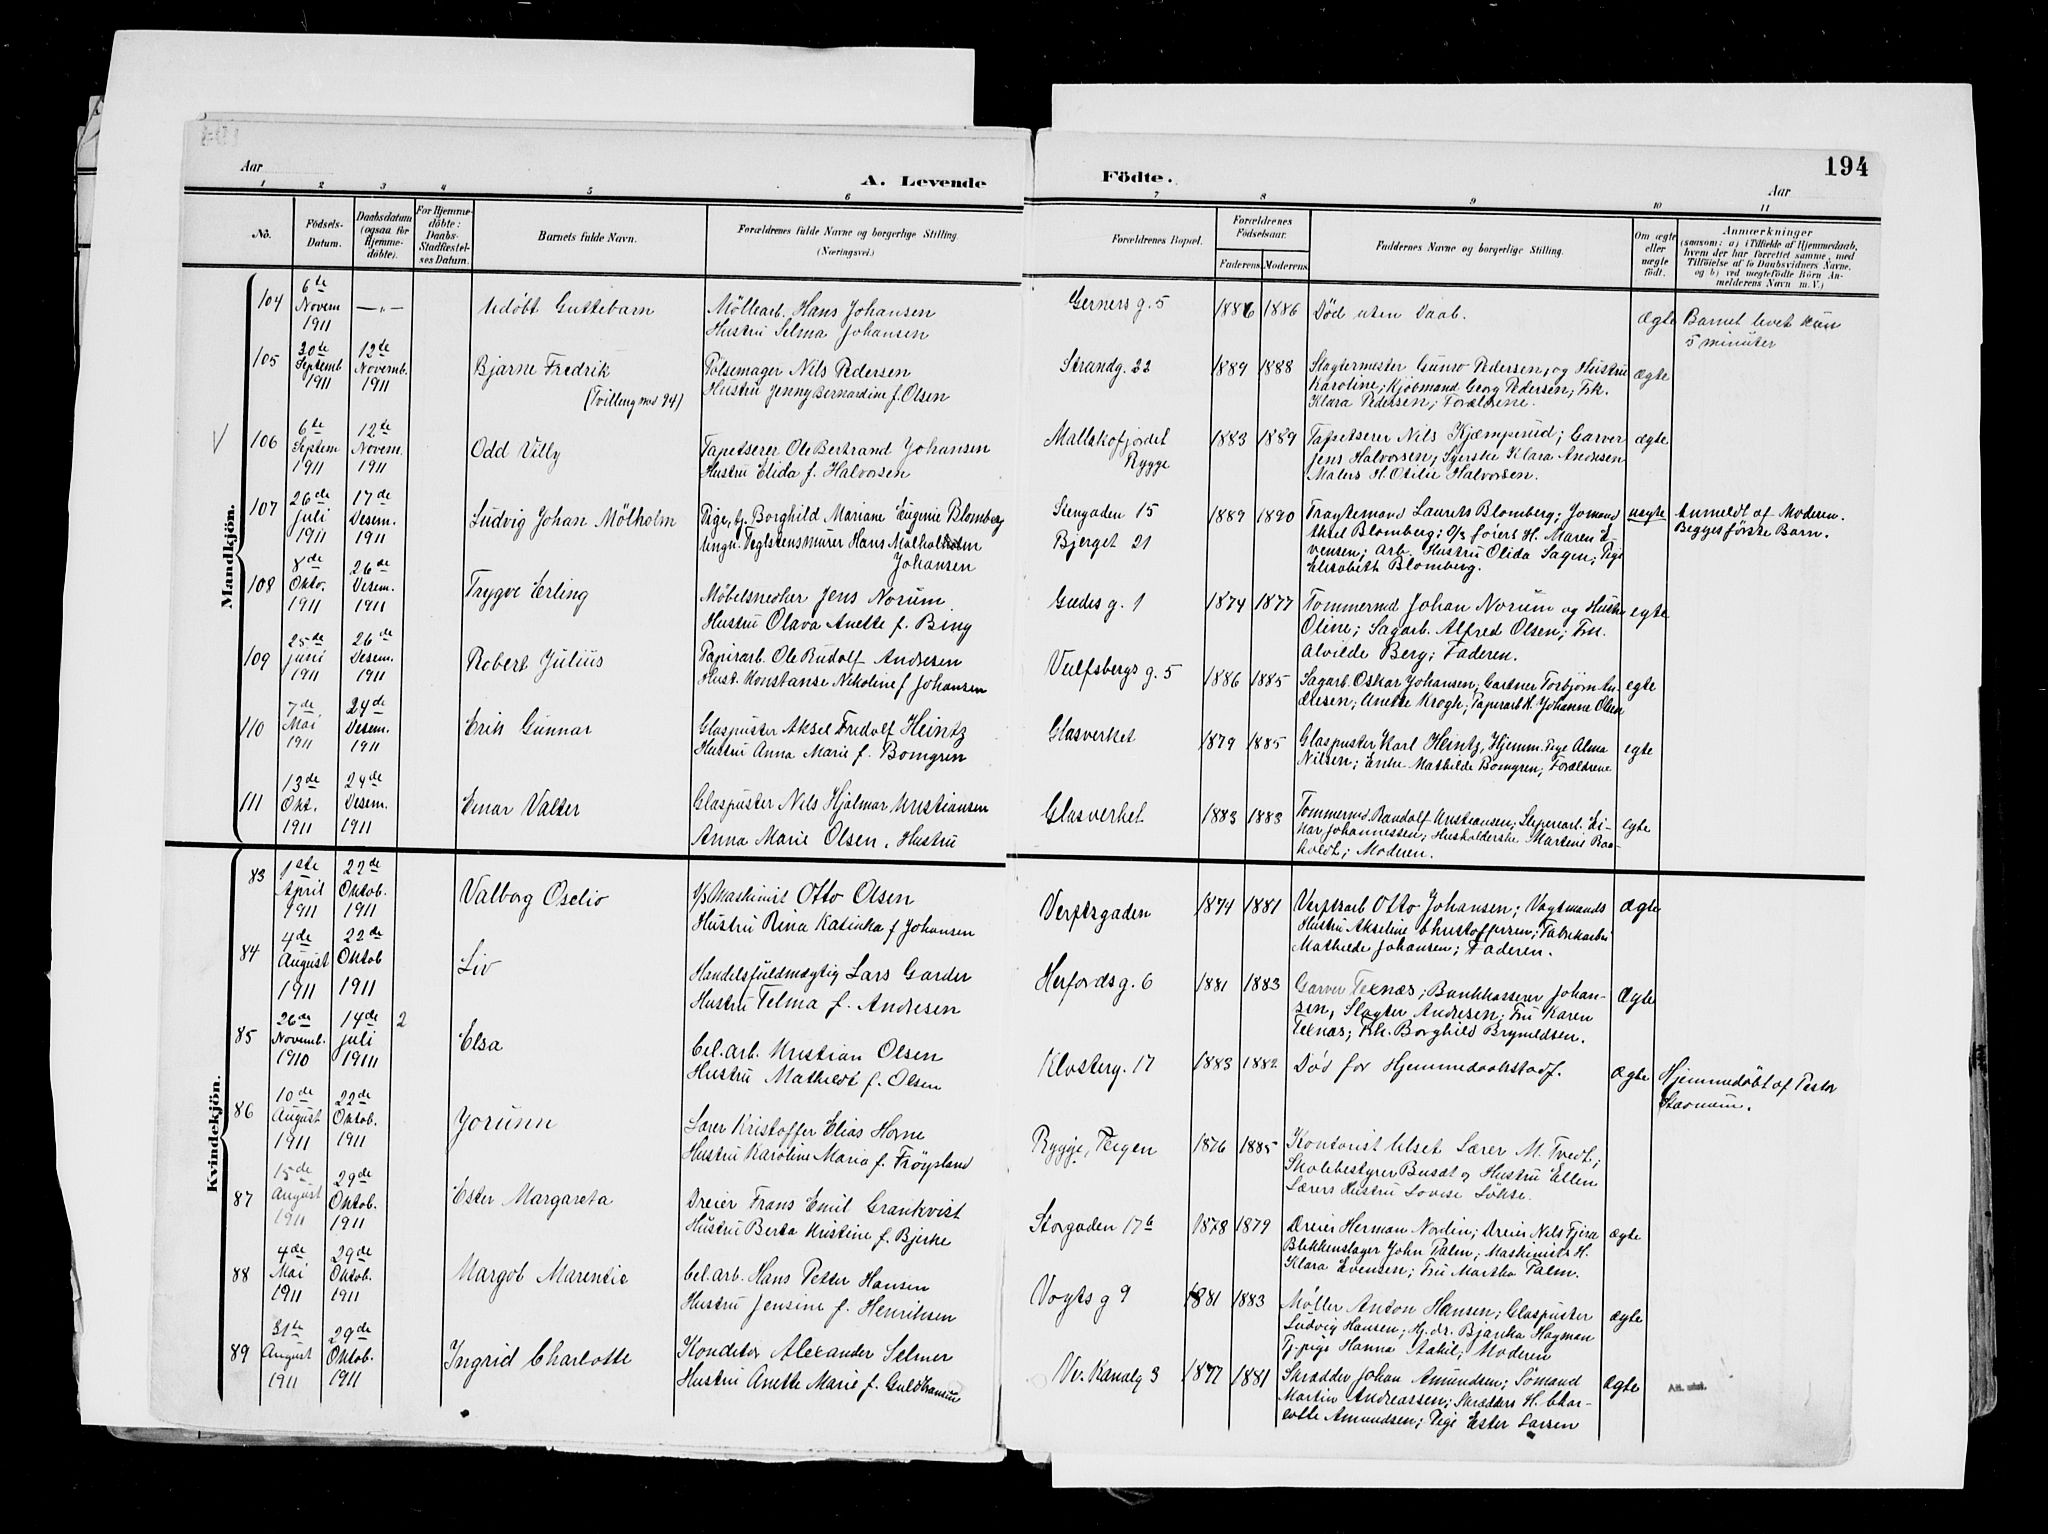 194
Aar
A. Levende Födte.
Aar
1 2 3 4 5 6 7 8 9 10 11
No. Födsels-Datum. Daabsdatum (ogsaa for Hjemme-döbte). For Hjemme-döbte: Daabs-Stadfæstel-ses Datum. Barnets fulde Navn. Forældrenes fulde Navne og borgerlige Stilling (Næringsvei.) Forældrenes Bopæl. Forældrenes Födselsaar. Faderens. Moderens. Faddernes Navne og borgerlige Stilling. Om ægte eller uægte födt. Anmærkninger (saasom: a) i Tilfælde af Hjemmedaab, hvem der har forrettet samme, med Tilföielse af to Daabsvidners Navne, og b) ved uegtefödte Börn An-melderens Navn m. V.)
Mandkjön.
104 6te Novem 1911 —„— Udöbt Guttebarn Möllearb. Hans Johansen Gerners g. 5 1886 1886 Död uten Daab. ægte Barnet levet kun
Hustru Selma Johansen 5 minuter
105 30te Septemb 1911 12te Novemb. 1911 Bjarne Fredrik Pölsemager Nils Pedersen Strandg. 22 1889 1888 Slagtermester Gunro Pedersen, og Hustru ægte
(Tvilling med 94) Hustru Jenny Bernardine f. Olsen Karoline; Kjöbmand Georg Pedersen, Frk.
Klara Pedersen; Forældrene.
106 6te Septem 1911 12te Novem. 1911 Odd Villy Tapetserer Ole Bertrand Johansen Mallakofjordet 1883 1889 Tapetserer Nils Kjæmperud; Garver ægte
Hustru Elida f. Halvorsen Rygge Jens Halvorsen, Syerske Klara Andresen
Malers H. Otilie Halvorsen.
107 26de juli 1911 17de Desem. 1911 Ludvig Johan Mölholm Pige, Borghild Mariane Eugenie Blomberg Stengaden 15 1889 1890 Laurets Blomberg; uegte Anmeldt af Moderen.
Ungk. Teglstensmurer Hans Mölholm Bjerget 21 Aksel Blomberg; H. Maren E- Begges förste Barn.
Johansen vensen; Arb. Hustru Olida Sagen; Pige
Elisabeth Blomberg.
108 8de Okto. 1911 26de Desem. 1911 Trygve Erling Möbelsnedker Jens Norum Gudes g. 1 1874 1877 Tömmermd Johan Norum og Hustru egte
Hustru Olava Anette f. Bing Oline; Sagarb. Alfred Olsen; Fru.
Alvilde Berg; Faderen.
109 25de juni 1911 26de Desem. 1911 Robert Julius Papirarb. Ole Rudolf Andresen Vulfsbergs g. 5 1886 1885 Sagarb. Oskar Johansen; Gartner Torbjörn An- egte
Hust. Konstanse Nikoline f Johansen dresen; Anette Krogh; Papirarb H. Johanne Olsen
110 7de Mai 1911 24de Desem. 1911 Erik Gunnar Glaspuster Aksel Fridolf Heintz Glasverket 1879 1885 Glaspuster Karl Heintz, Hjemm. Pige Alma egte
Hustru Anna Marie f. Bomgren Nilsen; Enke Mathilde Bomgren; Forældrene
111 13de Okt. 1911 24de Desem. 1911 Einar Valter Glaspuster Nils Hjalmar Kristiansen Glasverket 1883 1883 Tömmermd. Randolf Kristiansen; Ei- egte
Anna Marie Olsen, Hustru nar Johannessen; Husholderske Martine Raa-
holdt; Moderen.
Kvindekjön.
83 1ste April 1911 22de Oktob. 1911 Valborg Oselio Maskinist Otto Olsen Verftsgaden 1874 1881 Verftsarb Otto Johansen; Vagtmands ægte
Hustru Rina Katinka f Johansen Hustru Akseline Christoffersen; Fabrikarbei
Mathilde Johansen; Faderen.
84 4de August 1911 22de Oktob 1911 Liv Handelsfuldmægtig Lars Garder Herfordsg. 6 1881 1883 Garver Texnæs; Bankkasserer Johan- Ægte
Hustru Telma f. Andresen sen, Slagter Andresen; Fru Karen
Texnæs; Frk. Borghild Brynildsen.
85 26de Novemb. 1910 14de juli 1911 2 Elsa Cel. arb. Kristian Olsen Klosterg. 17 1883 1882 Död för Hjemmedaabstadf. Ægte Hjemmedöbt af Pastor
Hustru Mathildt f. Olsen Stavnum.
86 10de August 1911 22de Oktob. 1911 Jorunn Lærer Kristoffer Elias Horne Rygge, Teigen 1876 1885 Kontorist Ulset Lærer M. Tvedt;
Hustru Karoline Maria f. Fröysland Skolebestyrer Busæt og Hustru Ellen
Lærers Hustru Lovise Lökse.
87 15de August 1911 29de Oktob. 1911 Ester Margareta Dreier Frans Emil Grankvist Storgaden 17b 1878 1879 Dreier Herman Nordin; Dreier Nils Fjera ægte
Hustru Berta Kristine f. Bjerke Blikkenslager John Palm; Maskinists H.
Klara Evensen; Fru Martha Palm.
88 4de Mai 1911 29de Oktob. 1911 Margot Marentie Cel. arb. Hans Petter Hansen Vogts g 9 1881 1883 Möller Anton Hansen; Glaspuster ægte
Hustru Jensine f. Henriksen Ludvig Hansen; Hj. dr. Bjanka Hagman
Tj. pige Hanna Aakil; Moderen
89 31te August 1911 29de Oktob. 1911 Ingrid Charlotte Konditor Alexander Selmer Ve. Kanalg 3 1877 1881 Skrædder Johan Amundsen; Sömand ægte Att. utst.
Hustru Anette Marie f. Guldbransen Martin Andreassen; Skrædders H. Char-
lotte Amundsen; Pige Ester Larsen